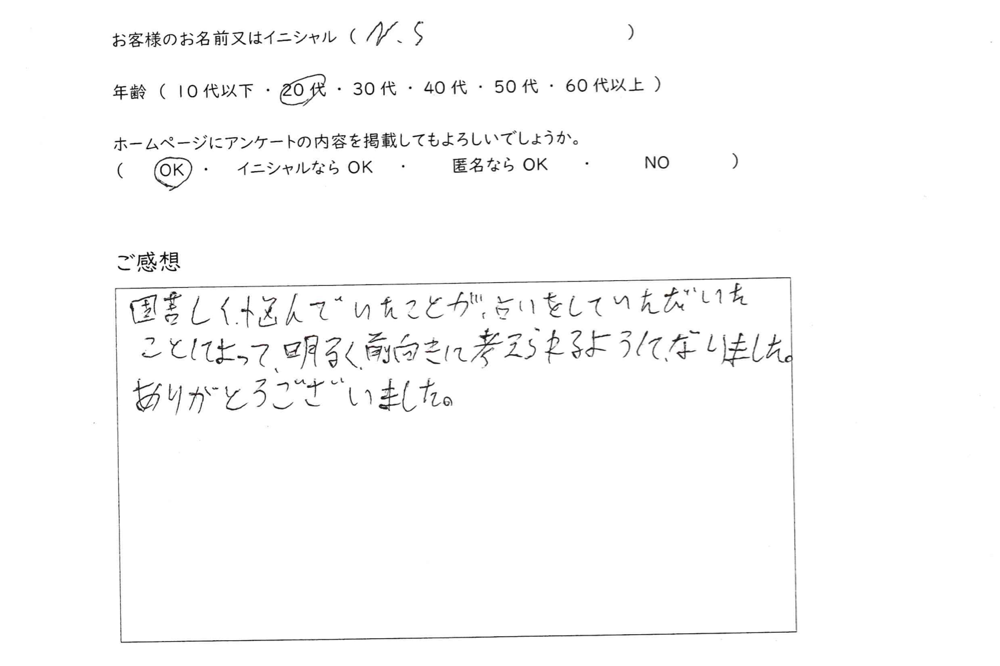 お客様のお名前又はイニシャル ( N.S )
年齢 ( 10代以下 ・ 20代 ・ 30代 ・ 40代 ・ 50代 ・ 60代以上 )
ホームページにアンケートの内容を掲載してもよろしいでしょうか。
( OK ・ イニシャルなら OK ・ 匿名なら OK ・ NO )
ご感想
し、悩んでいたことが、占いをしていただいた
ことによって、明るく、前向きに考えられるようになりました。
ありがとうございました。